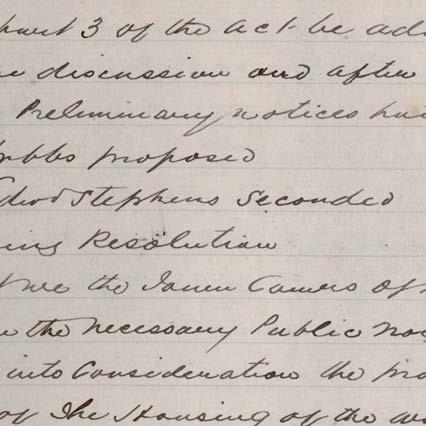 part 3 of the act be ad
discussion and after
Preliminary notices ha
bbs proposed
Stephens Seconded
ing Resolution
the
the necessary Public No
into Consideration the pro
of The Housing of the wo